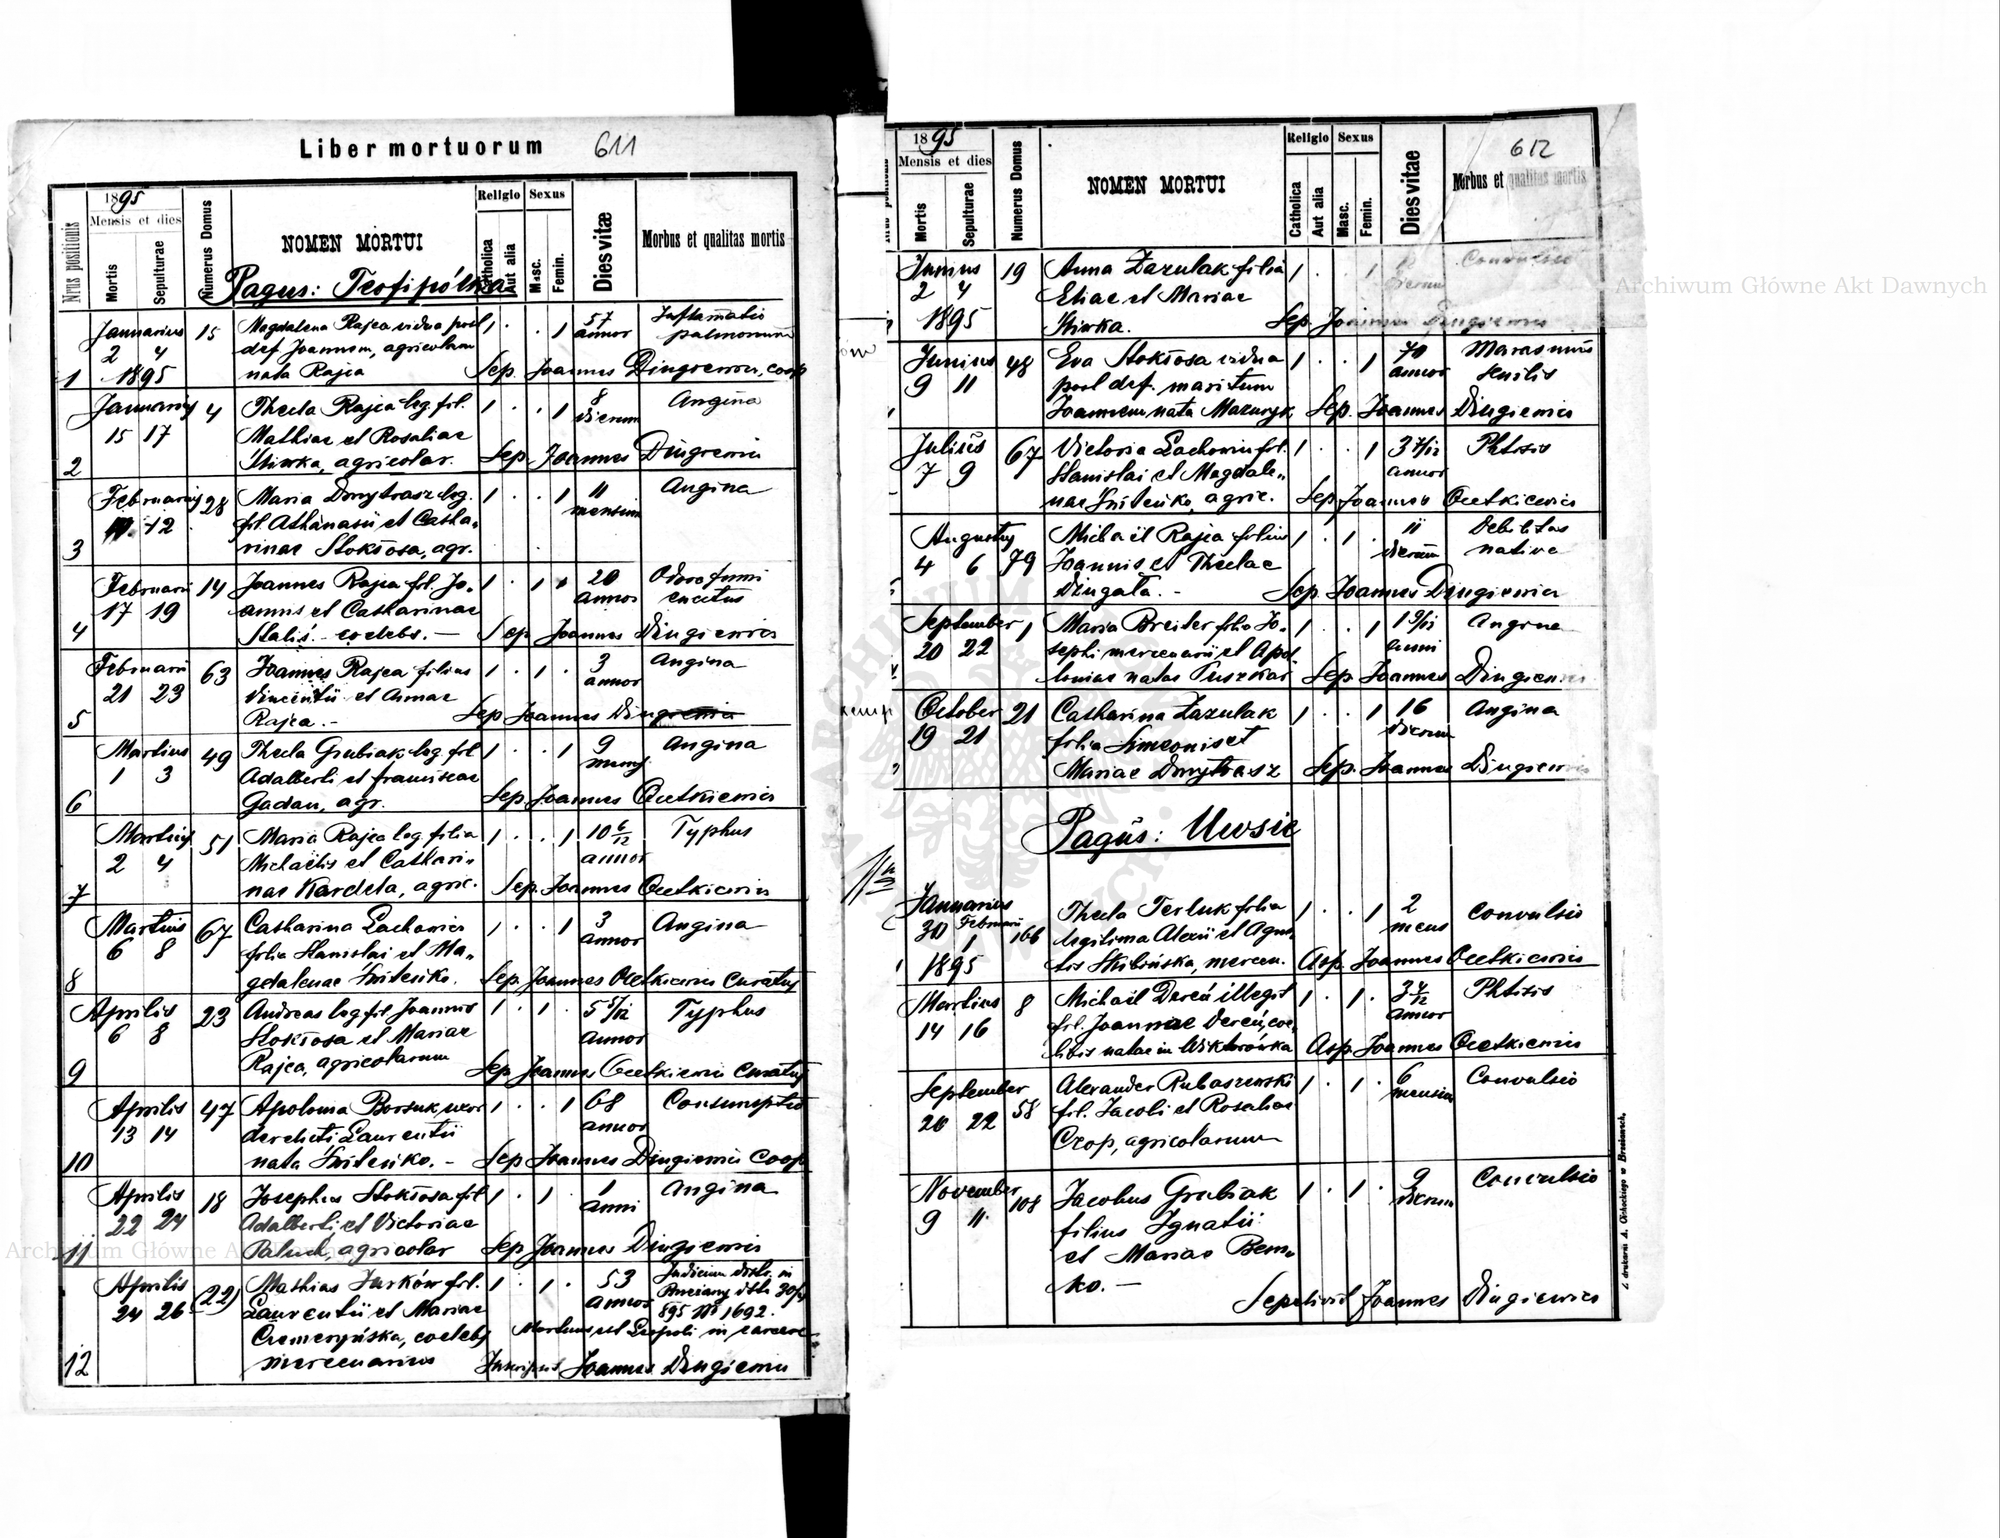 Liber mortuorum 611
Nrus positionis
1895
Mensis et dies
Mortis
Sepulturae
Numerus Domus
NOMEN MORTUI
Pagus: Teofipólka
Religio
Catholica
Aut alia
Sexus
Masc.
Femin.
Dies vitæ
Morbus et qualitas mortis
1 Januarius 2 4 1895 15
Magdalena Rajca vidua post
def. Joannem, agricolam
nata Rajca
1 . . 1 57 annor
Inflamatio
pulmonum
Sep. Joannes Dingiewicz, coop
2 Januarius 15 17 4
Thecla Rajca leg. fil.
Mathiae et Rosaliae
agricolar.
1 . . 1 8 dierum
Angina
Sep. Joannes Dingiewicz
3 Februarius 12 28
Maria Dmytrasz leg.
fil. Athanasii et Catha-
rinae Stokłosa, agr.
1 . . 1 11 mensium
Angina
4 Februarii 17 19 14
Joannes Rajca fil. Jo-
annis et Catharinae
coelebs. —
1 . 1 . 20 annor
Odore fumi
enectus
Sep Joannes Dingiewicz
5 Februarii 21 23 63
Joannes Rajca filius
Vincentii et Annae
Rajca. -
1 . 1 . 3 annor
Angina
Sep Joannes Dingiewicz
6 Martius 1 3 49
Thecla Grubiak leg. fil
Adalberti et Franciscae
Gadan, agr.
1 . . 1 9 mens
Angina
Sep. Joannes Ocetkiewicz
7 Martius 2 4 51
Maria Rajca leg. filia
Michaëlis et Cathari-
nae Kardela, agric.
1 . . 1 10 6/12 annor
Typhus
Sep. Joannes Ocetkiewicz
8 Martius 6 8 67
Catharina Lachowicz
filia Stanislai et Ma-
gdalenae Sniteńko.
1 . . 1 3 annor
Angina
Sep. Joannes Ocetkiewicz curatus
9 Aprilis 6 8 23
Andreas leg. fil. Joannis
Stokłosa et Mariae
Rajca, agricolarum
1 . 1 . 5 5/12 annor
Typhus
Sep Joannes Ocetkiewicz curatus
10 Aprilis 13 14 47
Apolonia Borsuk, uxor
derelicti Laurentii
nata Sniteńko. -
1 . . 1 68 annor
Consumptio
Sep Joannes Dingiewicz coop
11 Aprilis 22 24 18
Josephus Stokłosa fil
Adalberti et Victoriae
Paluch, agricolar
1 . 1 . 1 anni
Angina
Sep Joannes Dingiewicz
12 Aprilis 24 26 (22)
Mathias Jurków fil.
Laurentii et Mariae
coelebs
mercenarius
1 . 1 . 53 annor
Judicium distr. in
895 No 1692.
Mortuus est Leopoli in carcere
Joannes Dingiewicz
612
1895
Mensis et dies
Mortis
Sepulturae
Numerus Domus
NOMEN MORTUI
Religio
Catholica
Aut alia
Sexus
Masc.
Femin.
Dies vitae
Morbus et qualitas mortis
Junius 2 4 1895 19
Anna Zazulak filia
Eliae et Mariae
1 . . 1 dierum
Convulsio
Sep. Joannes Dingiewicz
Junius 9 11 48
Eva Stokłosa vidua
post def. maritum
Joannem nata Mazuryk
1 . . 1 70 annor
Marasmus
senilis
Sep. Joannes Dingiewicz
Julius 7 9 67
Victoria Lachowicz fil.
Stanislai et Magdale-
nae Sniteńko, agric.
1 . . 1 3 7/12 annor
Phtisis
Sep Joannes Ocetkiewicz
Augustus 4 6 79
Michaël Rajca filius
Joannis et Theclae
Dzugała. -
1 . 1 . 11 dierum
Debilitas
nativa
Sep. Joannes Dingiewicz
September 20 22 1
Maria Breiter filia Jo-
sephi mercenarii et Apol-
loniae natae Puszkar
1 . . 1
Angina
Sep Joannes Dingiewicz
October 19 21 21
Catharina Zazulak
filia Simeonis et
Mariae Dmytrasz
1 . . 1 16 dierum
Angina
Sep. Joannes Dingiewicz
Pagus: Uwsie
Januarius 30 Februarii 1 1895 166
Thecla Terluk filia
legitima Alexii et Agne-
tis Skibińska, mercen.
1 . . 1 2 mens
Convulsio
Asp. Joannes Ocetkiewicz
Martius 14 16 8
Michaël Dereń illegit
fil. Joannae Dereń, coe-
libis natae in Wiktorówka
1 . 1 . 3 4/12 annor
Phtisis
Asp. Joannes Ocetkiewicz
September 20 22 58
Alexander Rubaszewski
fil. Jacobi et Rosaliae
Czop, agricolarum
1 . 1 . 6 mensium
Convulsio
November 9 11 108
Jacobus Grubiak
filius Ignatii
et Mariae Bem-
ko. —
1 . 1 . 9 dierum
Convulsio
Sepelivit Joannes Dingiewicz
Archiwum Główne Akt Dawnych
Archiwum Główne Akt Dawnych